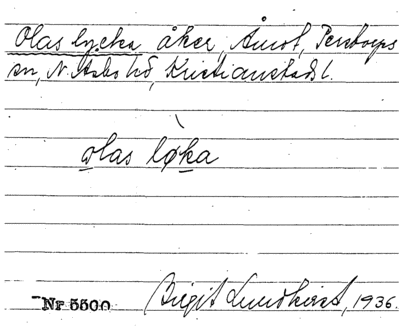 Olas lycka åker, Åmot, Perstorps
sn, N. Åsbo hd, Kristianstads l.
olas løka
Nr 5500 Birgit Lundkvist, 1936.